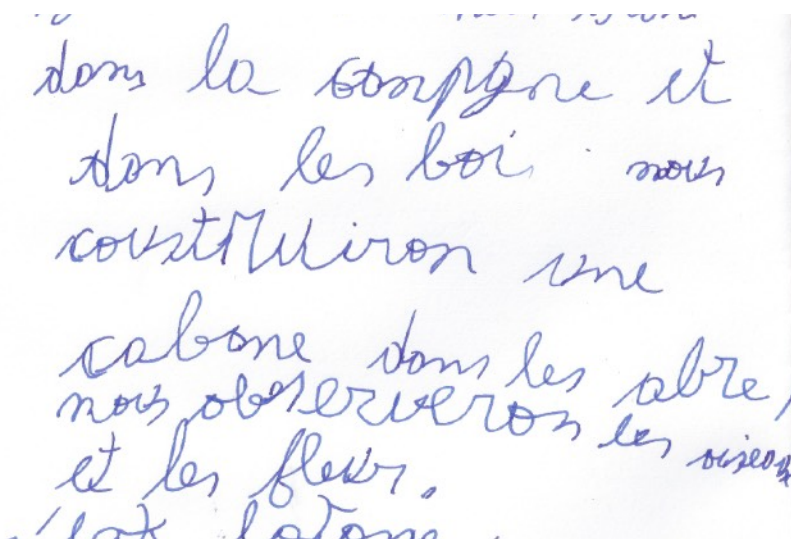 dans la compagne et
dans les boi nous
coustruiron une
cabane dans les abre,
nous observeron les oiseau
et les fleur.